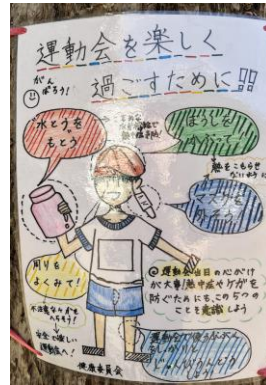 運動会を楽しく
過ごすために!!
がん
ばろう!
水とうを
もとう
ぼうしを
かぶろう
熱をこもらせ
ないように
マスクを
外そう
周りを
よくみて!
安全で楽しい
運動会へ!
@運動会当日の心がけ
が大事!熱中症やケガを
防ぐためにも、この5つの
ことを意識しよう
健康委員会